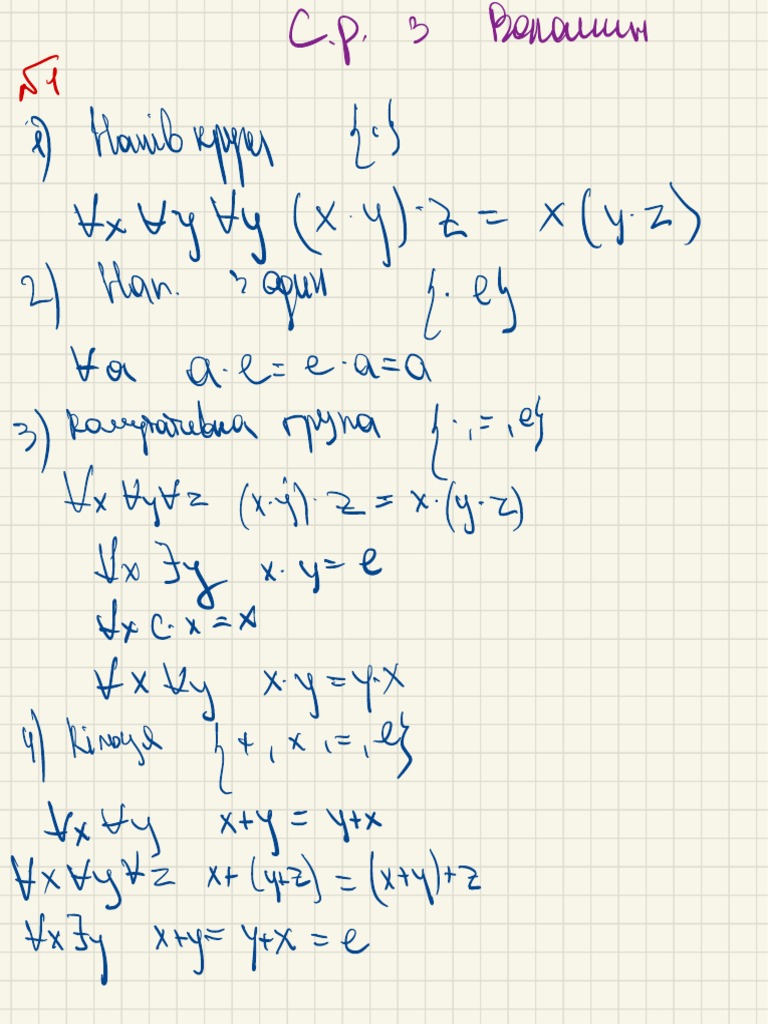 С.р. 3 Волошин
№1
1) Напівгрупа {·}
∀x ∀y ∀y (x·y)·z = x(y·z)
2) Нап. з один {· e}
∀a a·e = e·a = a
3) комутативна група {·, =, e}
∀x ∀y ∀z (x·y)·z = x·(y·z)
∀x ∃y x·y = e
∀x e·x = x
∀x ∀y x·y = y·x
4) Кільця {+, ×, =, e}
∀x ∀y x+y = y+x
∀x ∀y ∀z x+(y+z) = (x+y)+z
∀x ∃y x+y = y+x = e